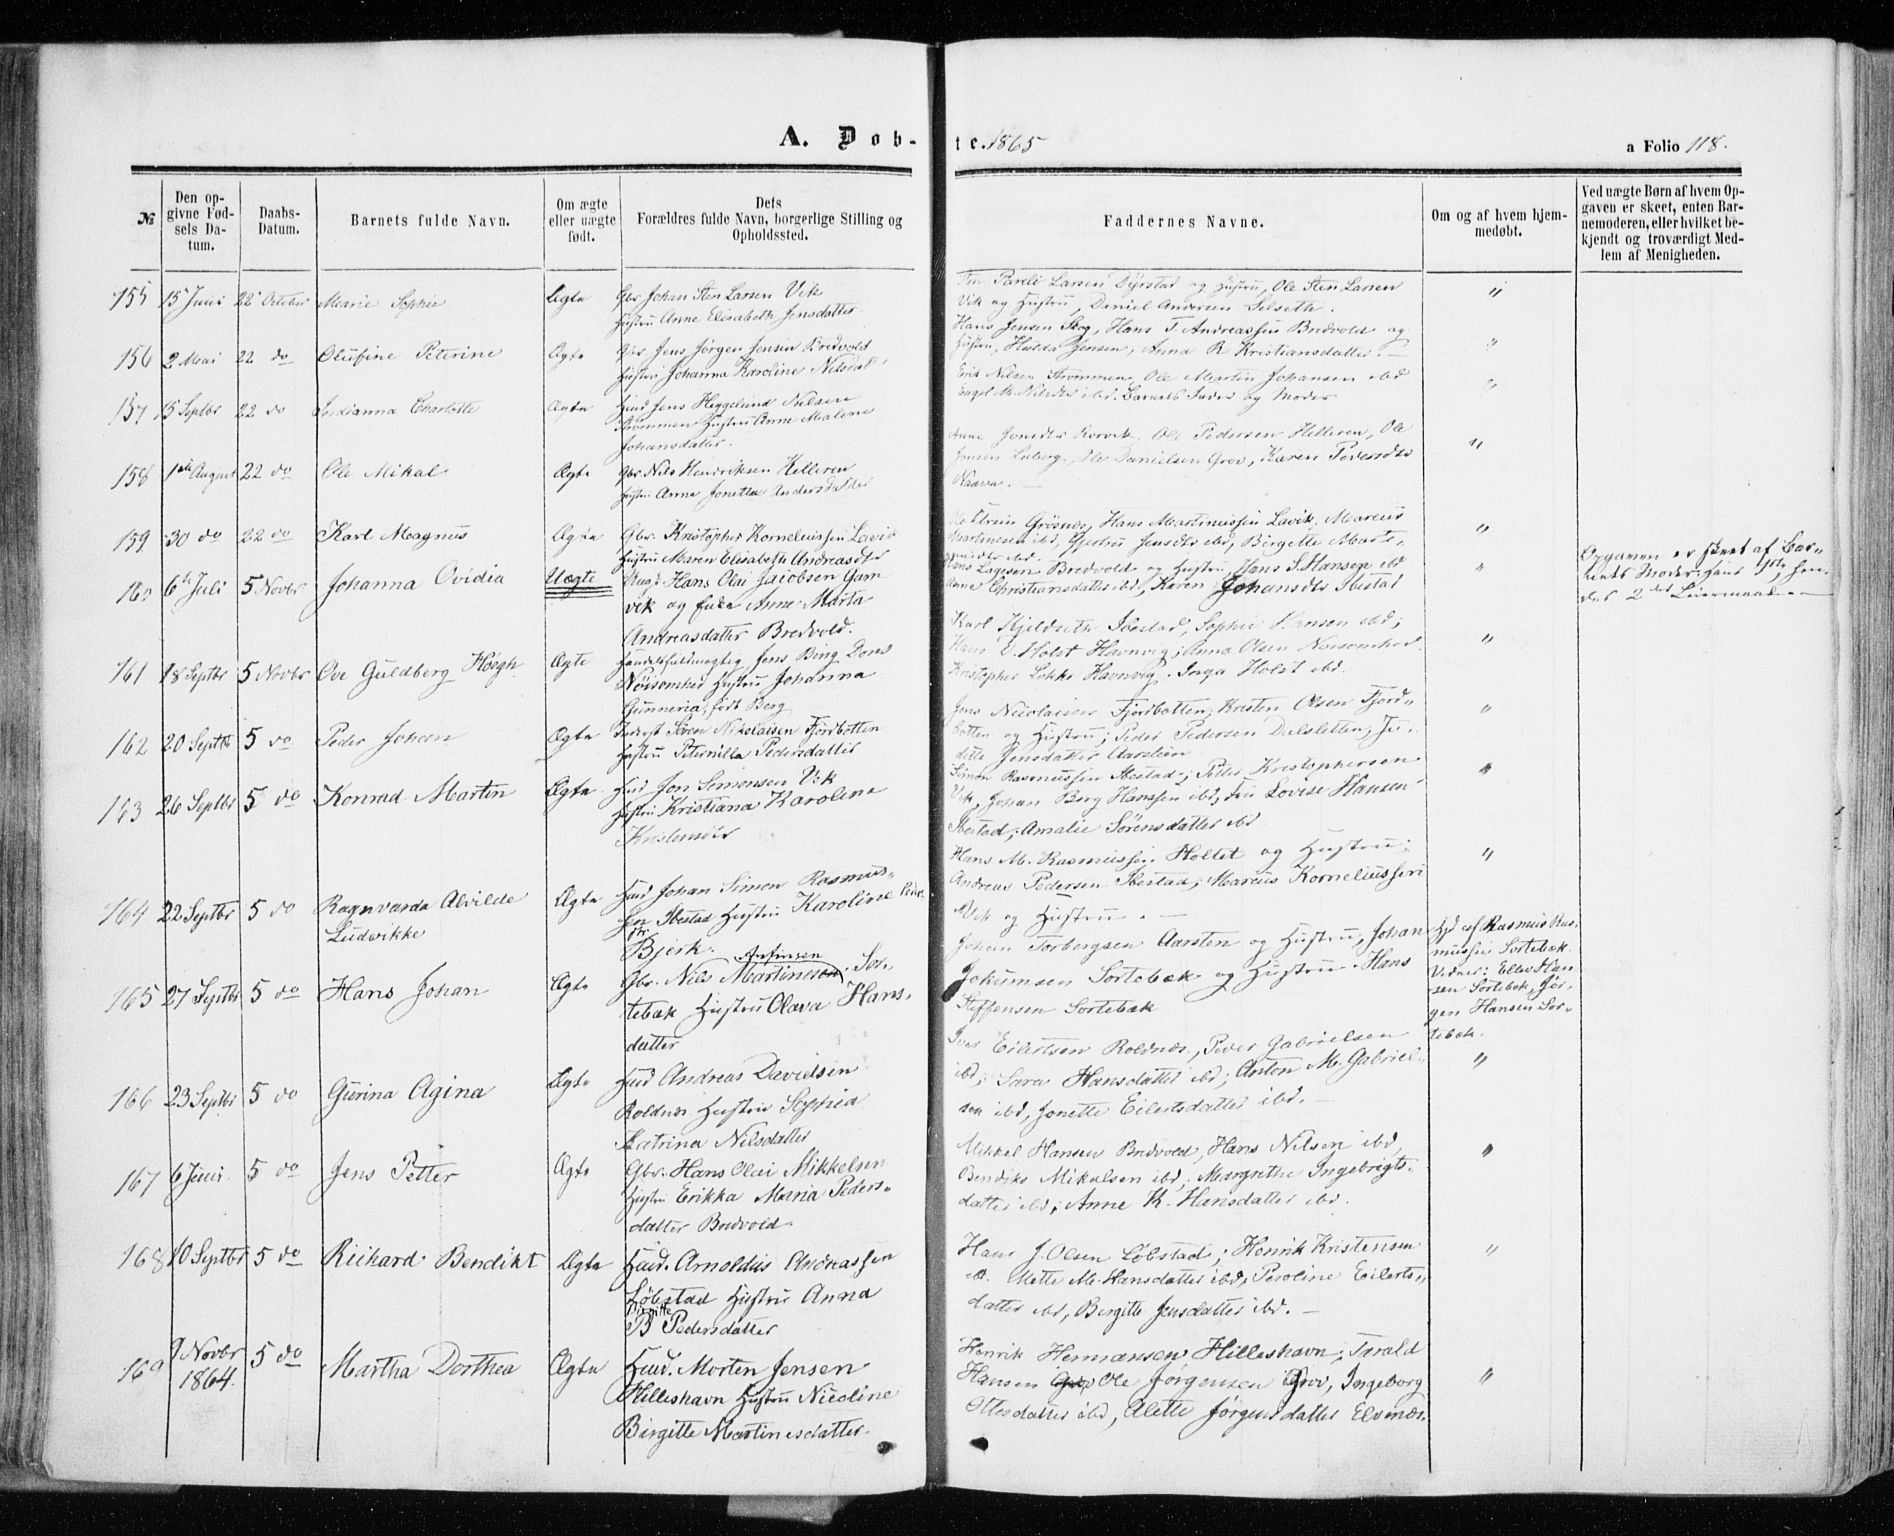 A. Døb-
te. 1865
a Folio 118.
№
Den op-
givne Fød-
sels Da-
tum.
Daabs-
Datum.
Barnets fulde Navn.
Om ægte
eller uægte
født.
Dets
Forældres fulde Navn, borgerlige Stilling og
Opholdssted.
Faddernes Navne.
Om og af hvem hjem-
medøbt.
Ved uægte Børn af hvem Op-
gaven er skeet, enten Bar-
nemoderen, eller hvilket be-
kjendt og troværdigt Med-
lem af Menigheden.
155 15 Juni 22 October Marie Sophie Ægte Gbr Johan Sten Larsen Vik
Hustru Anne Elisabeth Jensdatter
Pareli Larsen Dyrstad og Hustru, Ole Sten Larsen
Vik og Hustru, Daniel Andersen Selseth.
"
156 2 Mai 22 do Olufine Peterine Ægte Gbr Jens Jørgen Jensen Bredvold
Hustru Johanna Karoline Nilsdat
Hans Jensen Skog, Hans T. Andreassen Bredvold og
Hustru, Hulda Jensen, Anna R Kristiansdatter. —
"
157 15 Septbr 22 do Charlotte Ægte Huud Jens Heggelund Nilsen
Strømmen Hustru Anne Malene
Johansdatter.
Erik Nilsen Strømmen, Ole Martin Johansen ibd
Engel M. Nilsdtr ibd. Barnets Fader og Moder
"
158 1ste August 22 do Ole Mikal Ægte Gbr. Nils Hendriksen Kelleren
Hustru Anna Jonetta Andersdatter
Anne Jonsdtr Rorvik, Ole Pedersen Helleren, Ole
Jensen Laberg, Ole Danielsen Grov, Karen Pedersdtr
"
159 30 do 22 do Karl Magnus Ægte Gbr. Kristopher Korneliussen Lavik
Hustru Maren Elisabeth Andreasdtr
Grøsnes, Hans Martinussen Lavik, Marcus
Martinesen ibd, Gjertru Jensdtr ibd, Birgette Mart-
"
160 6te Juli 5 Novbr Johanna Ovidia Uægte Ungk Hans Olai Jacobsen Gam
vik og Enke Anne Marta
Andreasdatter Bredvold.
Bredvold og Hustru, Hans S. Hansen ibd
Anne Christiansdatter ibd, Karen Johansdtr Ibestad
"
Opgaven er skeet af Bar-
nets Moder, Hans 1ste, hen-
des 2det Leiermaal. —
161 18 Septbr 5 Novbr Ove Guldberg Høegh Ægte Handelsfuldmægtig Jens Bing Dons
Nøisomhed Hustru Johanna
Gunneria, født Berg
Karl Kjeldseth Ibestad, Sophie Hansen ibd;
Hans E. Holst Havnvig; Anna Olsen Nøisomhed,
Kristopher Lokke Havnvig. Inga Holst ibd.
"
162 20 Septbr 5 do Peder Johan Ægte Inderst Søren Nikolaisen Fjordbotten
Hustru Peternilla Pedersdatter
Jens Nicolaisen Fjordbotten; Kristen Olsen Fjord-
botten og Hustru; Peder Pedersen Dalsletten; Ju-
ditte Jensdatter Aarstein
"
163 26 Septbr 5 do Konrad Martin Ægte Huud Jon Simonsen Vik
Hustru Kristiana Karoline
Kristensdtr
Simon Rasmussen Ibestad; Petter Kristophersen
Vik, Johan Berg Hanssen ibd, Lovise Hansen
Ibestad; Amalie Sørensdatter ibd
"
164 22 Septbr 5 do Ragnvarda Alvilde
Ludvikke
Ægte Huud Johan Simon Rasmus-
sen Ibestad Hustru Karoline Peders
dtr
Bjerk.
Hans M. Rasmussen Holtet og Hustru;
Andreas Pedersen Ibestad; Marcus Korneliussen
Vik og Hustru. —
"
165 27 Septbr 5 do Hans Johan Ægte Gbr. Nils Martinesen Anfinsen Sor-
tebæk Hustru Olava Hans-
datter
Johan Torbergsen Aarsten og Hustru, Johan
Jokumsen Sortebæk og Hustru. Hans
Steffensen Sortebæk
Hjd af Rasmus Ras-
mussen Sortebæk
Vidner: Ellen Han
sen Sortebæk, Jør-
gen Hansen Sor-
tebæk.
166 23 Septbr 5 do Gurina Agina Ægte Huud Andreas Davidsen
Roldnæs Hustru Sophia
Katrina Nilsdatter
Iver Eilertsen Roldnæs, Peder Gabrielsen
ibd; Sara Hansdatter ibd; Anton M. Gabriel-
sen ibd, Jonette Eilertsdatter ibd. —
"
167 6 Juni 5 do Jens Petter Ægte Gbr. Hans Olai Mikkelsen
Hustru Erikka Maria Peders-
datter Bredvold
Mikkel Hansen Bredvold, Hans Nilsen ibd,
Bendiks Mikalsen ibd, Margrethe Ingebrigts-
datter ibd; Anne K. Hansdatter ibd.
"
168 10 Septbr 5 do Richard Bendikt Ægte Huud. Arnoldus Andreassen
Løbstad Hustru Anna
Birgitte
B Pedersdatter
Hans J. Olsen Løbstad; Henrik Kristensen
ibd. Mette M. Hansdatter ibd, Peroline Eilerts-
datter ibd, Birgitte Jensdatter ibd. —
"
169 9 Novbr
1864.
5 do Martha Dorthea Ægte Huud. Morten Jensen
Hilleshavn Hustru Nicoline
Birgitte Martinesdatter.
Henrik Hermansen Hilleshavn, Tarald
Hansen Ole Jørgensen Grov, Ingeborg
Ottesdatter ibd, Alette Jørgensdatter Elvenæs.
"